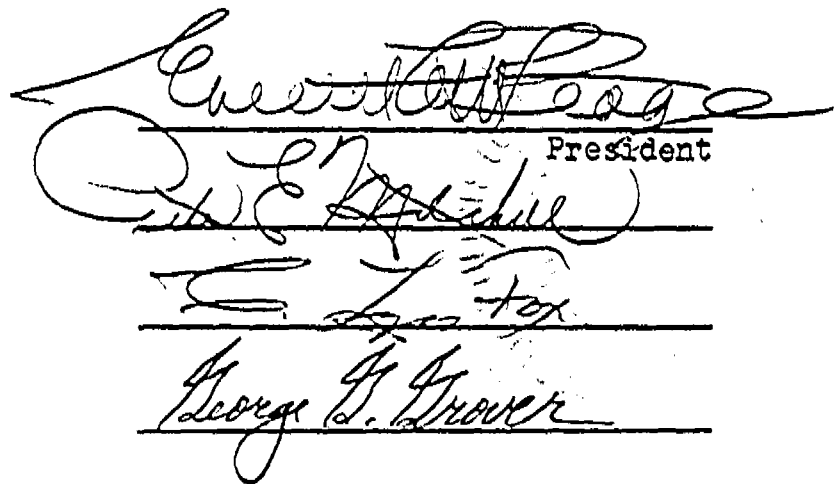 Everett C. McKeage
President
Peter E. Mitchell
C. Lyn Fox
George G. Grover